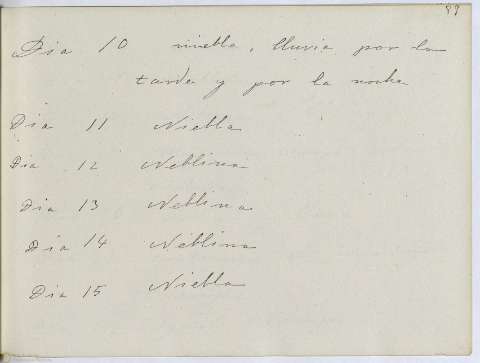 89
Dia 10 niebla, lluvia por la
tarde y por la noche
Dia 11 Niebla
Dia 12 Neblina
Dia 13 Neblina
Dia 14 Neblina
Dia 15 Niebla